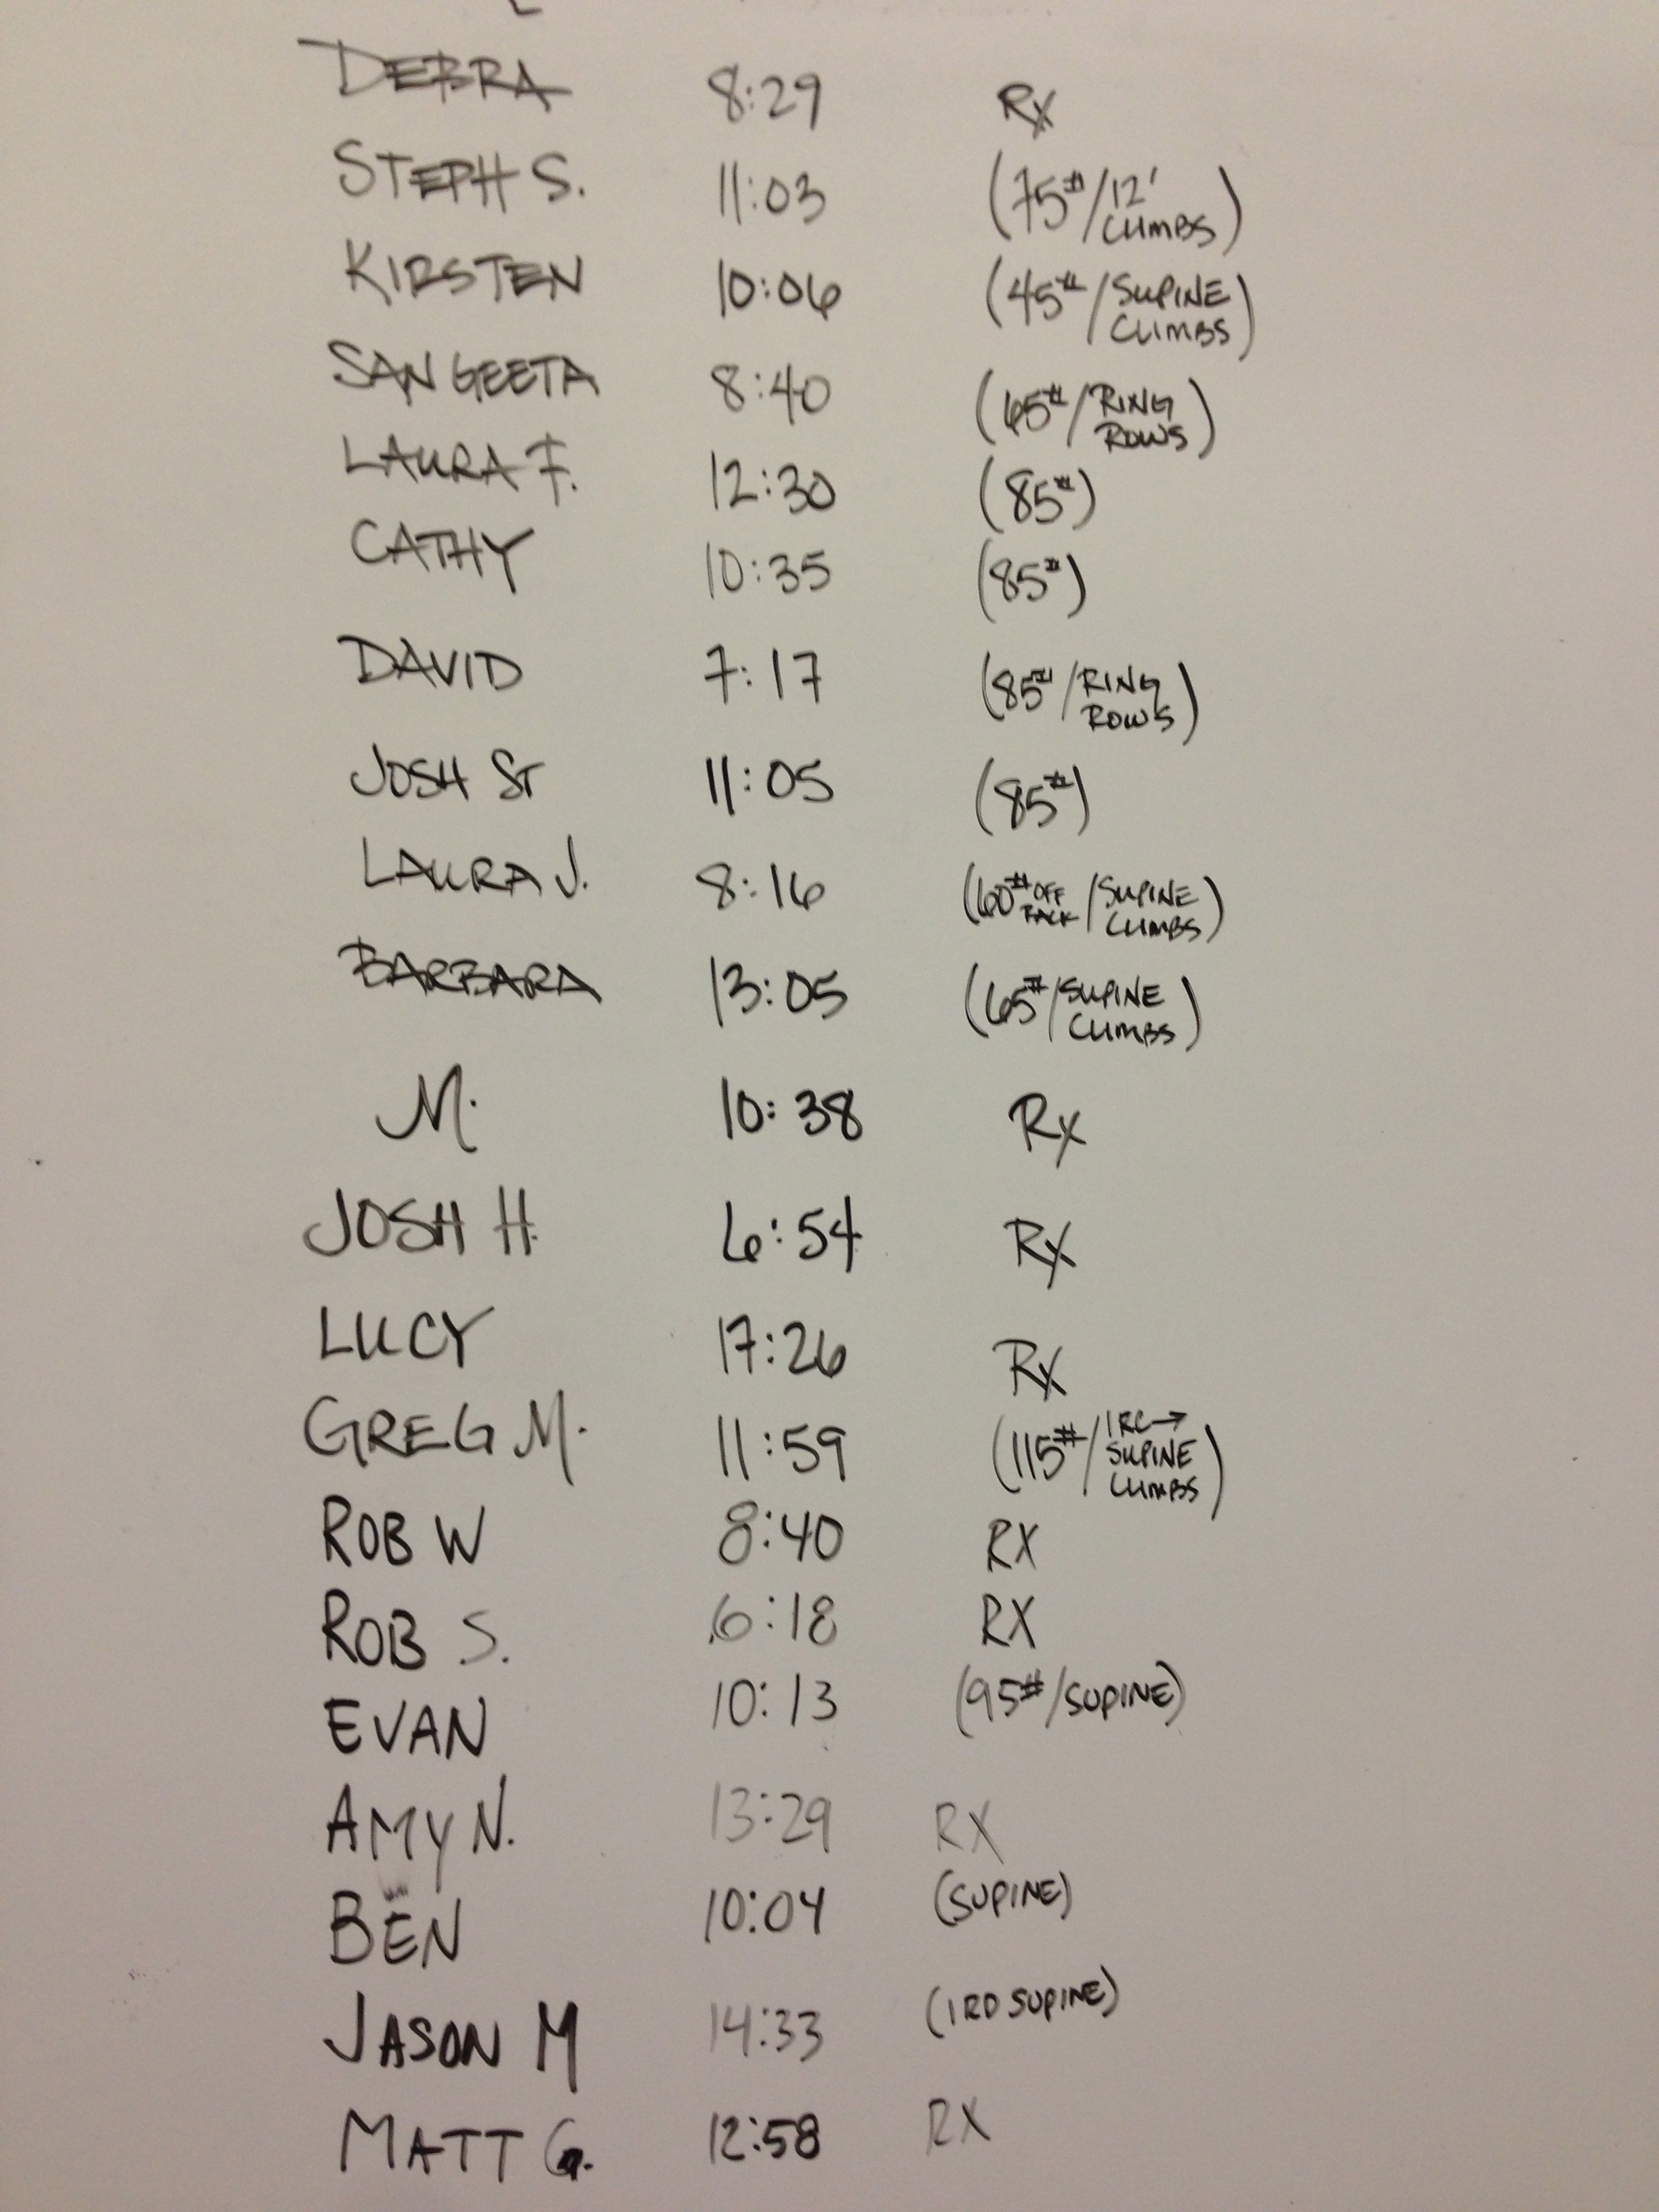 DEBRA 8:29 Rx
STEPH S. 11:03 (75#/12' CLIMBS)
KIRSTEN 10:06 (45#/SUPINE CLIMBS)
SANGEETA 8:40 (65#/RING ROWS)
LAURA F. 12:30 (85#)
CATHY 10:35 (85#)
DAVID 7:17 (85#/RING ROWS)
JOSH ST 11:05 (85#)
LAURA J. 8:16 (60# OFF RACK/SUPINE CLIMBS)
BARBARA 13:05 (65#/SUPINE CLIMBS)
M. 10:38 Rx
JOSH H. 6:54 Rx
LUCY 17:26 Rx
GREG M. 11:59 (115#/1RC→ SUPINE CLIMBS)
ROB W 8:40 RX
ROB S. 6:18 RX
EVAN 10:13 (95#/SUPINE)
AMY N. 13:29 RX
BEN 10:04 (SUPINE)
JASON M 14:33 (1RD SUPINE)
MATT G. 12:58 RX